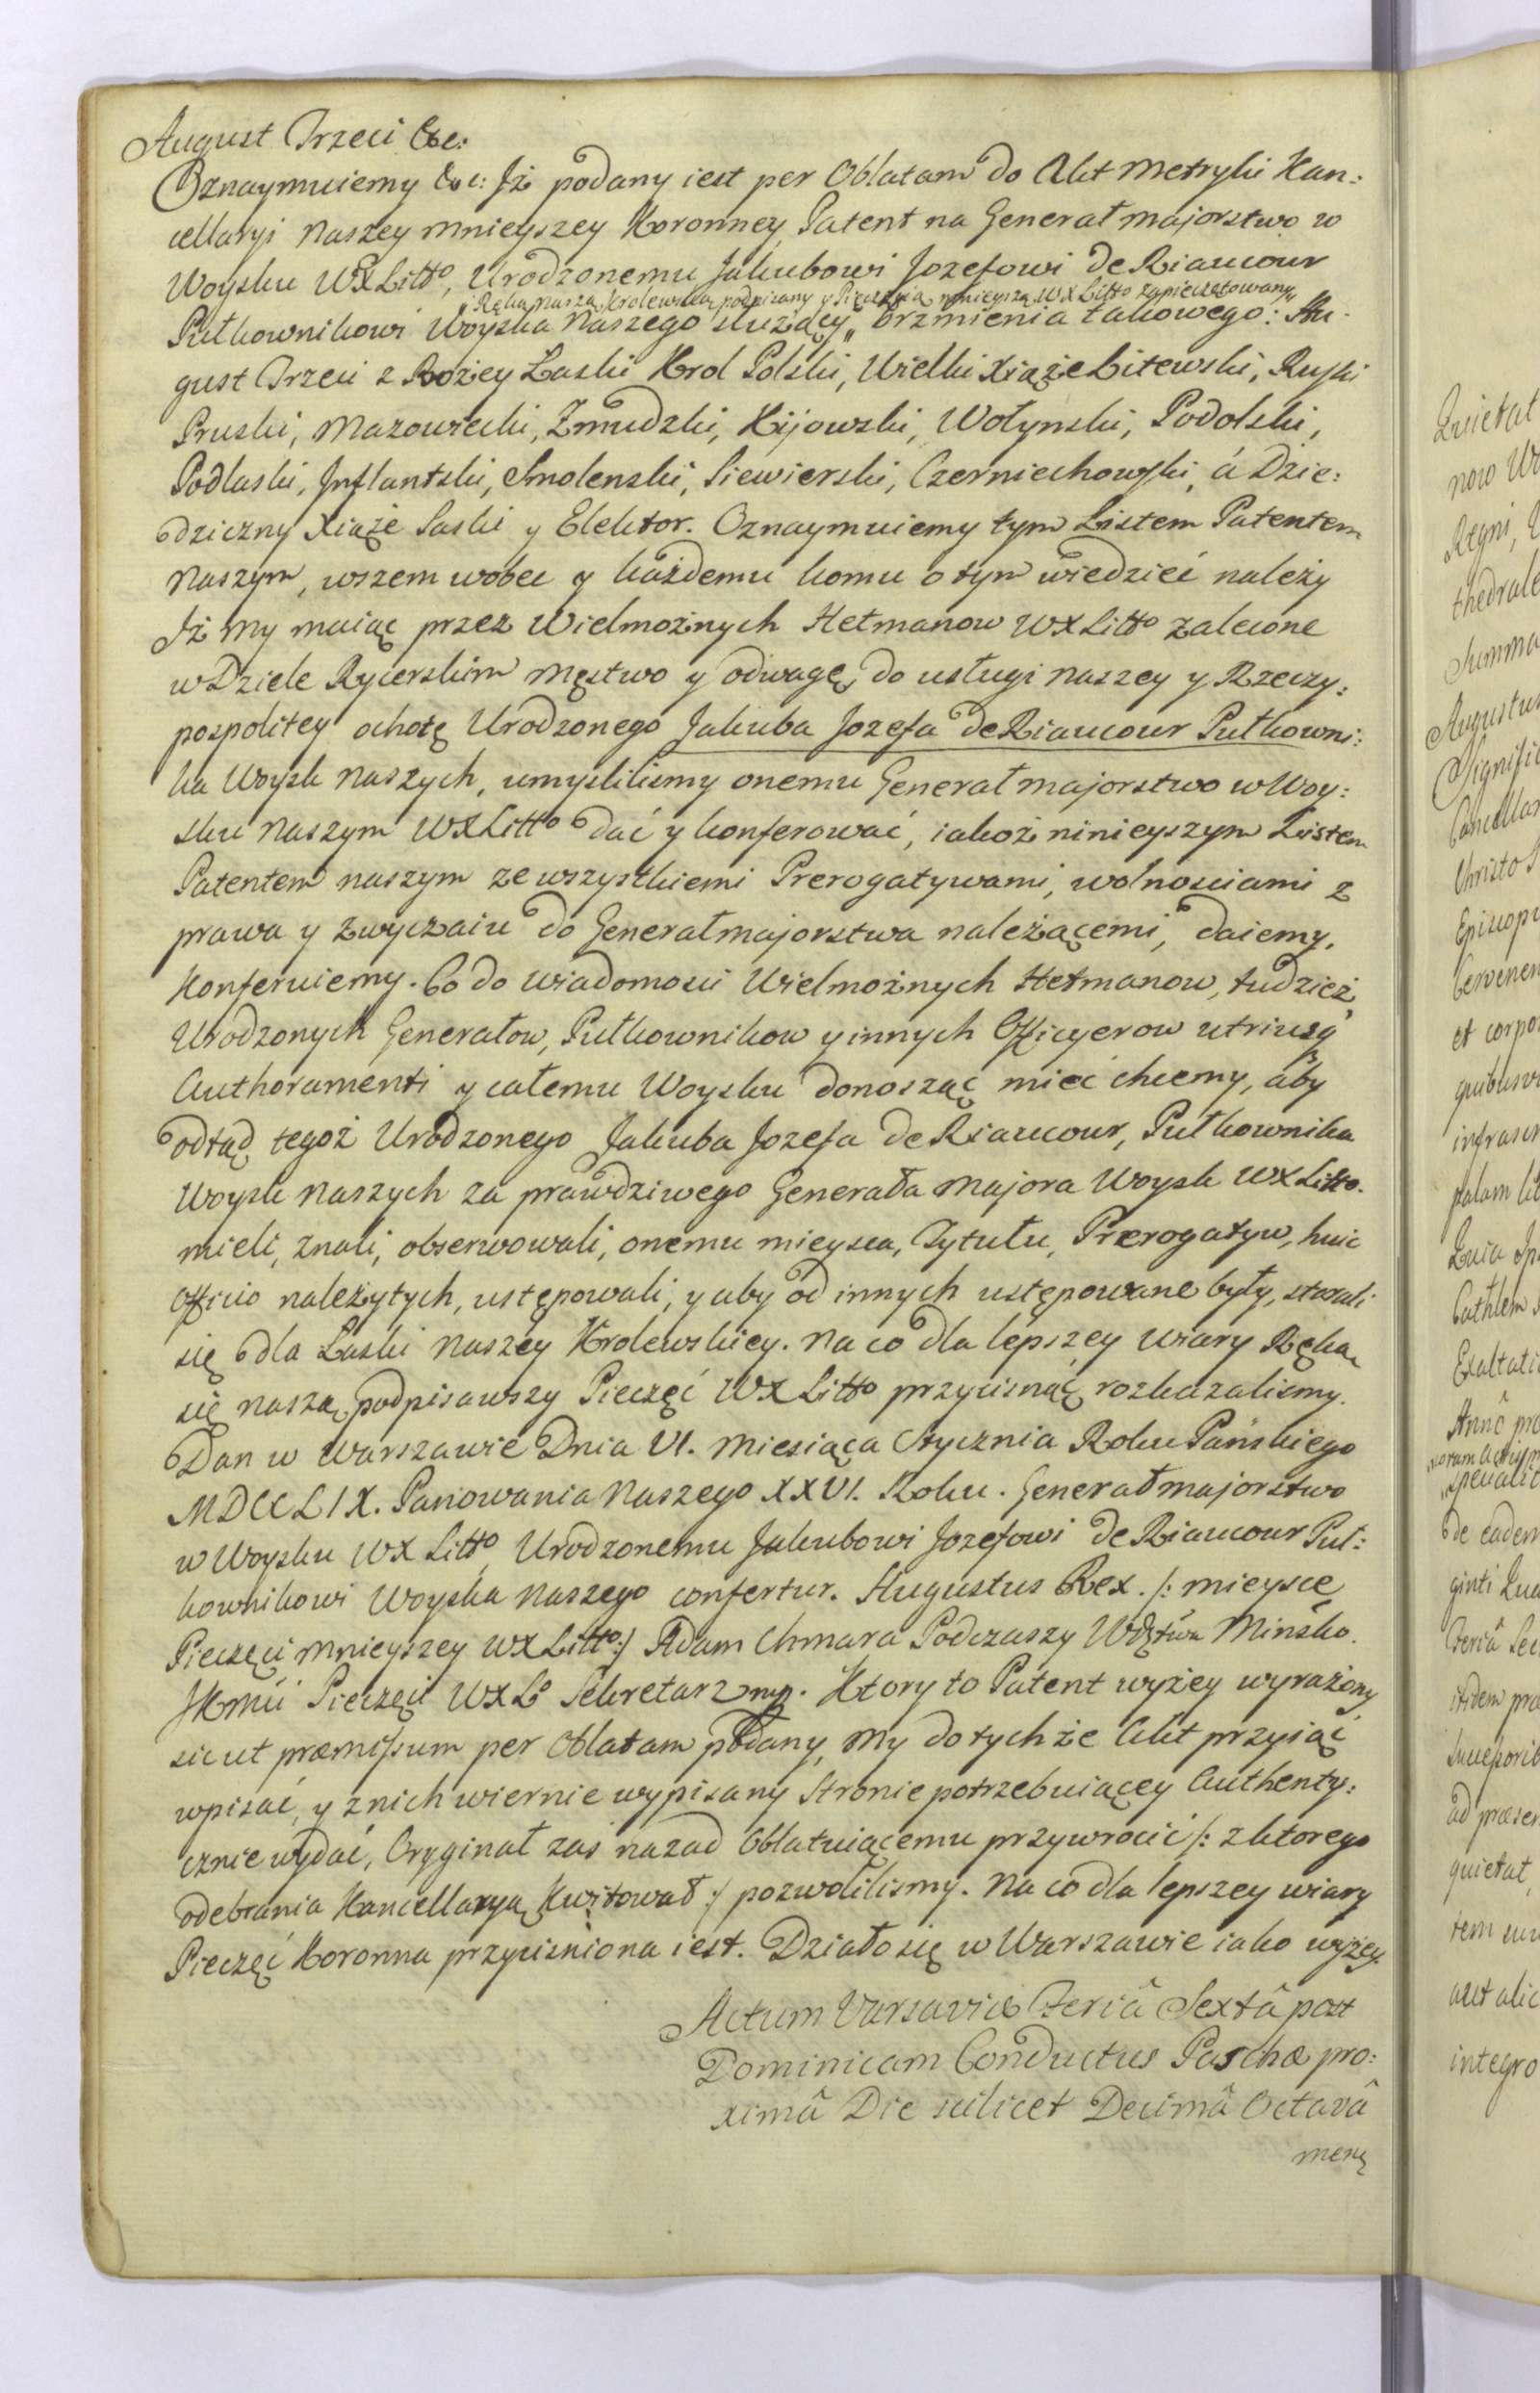 August Trzeci &c:
Oznaymuiemy &c: Jż podany iest per Oblatam do Akt Metryki Kan:
cellaryi Naszey Mnieyszey Koronney Patent na Generał Majorstwo w
Woysku WXLitto, Urodzonemu Jakubowi Jozefowi de Riaucour
„Ręką Naszą Krolewską podpisany y Pieczęcią mnieyszą WXLitto zapieczętowany„
Pułkownikowi Woyska Naszego służący„ brzmienia takowego: Au-
gust Trzeci z Bożey Łaski Krol Polski, Wielki Xiąże Litewski, Ruski
Pruski, Mazowiecki, Zmudzki, Kijowski, Wołynski, Podolski,
Podlaski, Jnflantski, Smolenski, Siewierski, Czerniechowski, á Dzie:
dziczny Xiąże Saski y Elektor. Oznaymuiemy tym Listem Patentem
Naszym, wszem wobec y każdemu komu o tym wiedzieć należy
Jż My maiąc przez Wielmożnych Hetmanow WXLitto zalecone
w Dziele Rycerskim Męstwo y odwagę, do usługi Naszey y Rzeczy:
pospolitey ochotę Urodzonego Jakuba Jozefa de Riaucour Pułkowni:
ka Woysk Naszych, umysliliśmy onemu Generał Majorstwo w Woy:
sku Naszym WXLitto dać y konferować, iakoż ninieyszym Listem
Patentem Naszym ze wszystkiemi Prerogatywami, wolnosciami z
prawa y zwyczaiu do Generałmajorstwa należącemi, daiemy,
Konferuiemy. Co do wiadomosci Wielmożnych Hetmanow, tudzież
Urodzonych Generałow, Pułkownikow y innych Officyerow utriusq
Authoramenti y całemu Woysku donosząc mieć chcemy, aby
odtąd tegoż Urodzonego Jakuba Jozefa de Riaucour, Pułkownika
Woysk Naszych za prawdziwego Generała Majora Woysk WXLitto.
mieli, znali, obserwowali, onemu mieysca, Tytułu, Prerogatyw, huic
Officio należytych, ustępowali, y aby od innych ustępowane były, starali
się dla Łaski Naszey Krolewskiey. Na co dla lepszey wiary Ręką
się Naszą podpisawszy Pieczęć WXLitto przycisnąć rozkazaliśmy.
Dan w Warszawie Dnia VI. Miesiąca Stycznia Roku Pańskiego
MDCCLIX. Panowania Naszego XXVI. Roku. Generałmajorstwo
w Woysku WX Litto Urodzonemu Jakubowi Jozefowi de Riaucour Puł:
kownikowi Woyska Naszego confertur. Augustus Rex. /: mieysce
Pieczęci Mnieyszey WXLitto:/ Adam Chmara Podczaszy Wdztwa Minsko.
JKMci Pieczęci WXLo Sekretarz mp. Ktory to Patent wyżey wyrażony
sicut præmissum per Oblatam podany, My do tychże Akt przyiąć
wpisać, y z nich wiernie wypisany Stronie potrzebuiącey Authenty:
cznie wydać, Oryginał zas nazad Oblatuiącemu przywrocić /: z ktorego
odebrania Kancellaryą kwitował :/ pozwoliliśmy. Na co dla lepszey wiary
Pieczęć Koronna przyciśniona iest. Działo się w Warszawie iako wyżey.
Actum Varsaviæ Feriâ Sextâ post
Dominicam Conductus Paschæ pro:
ximâ Die scilicet Decimâ Octavâ